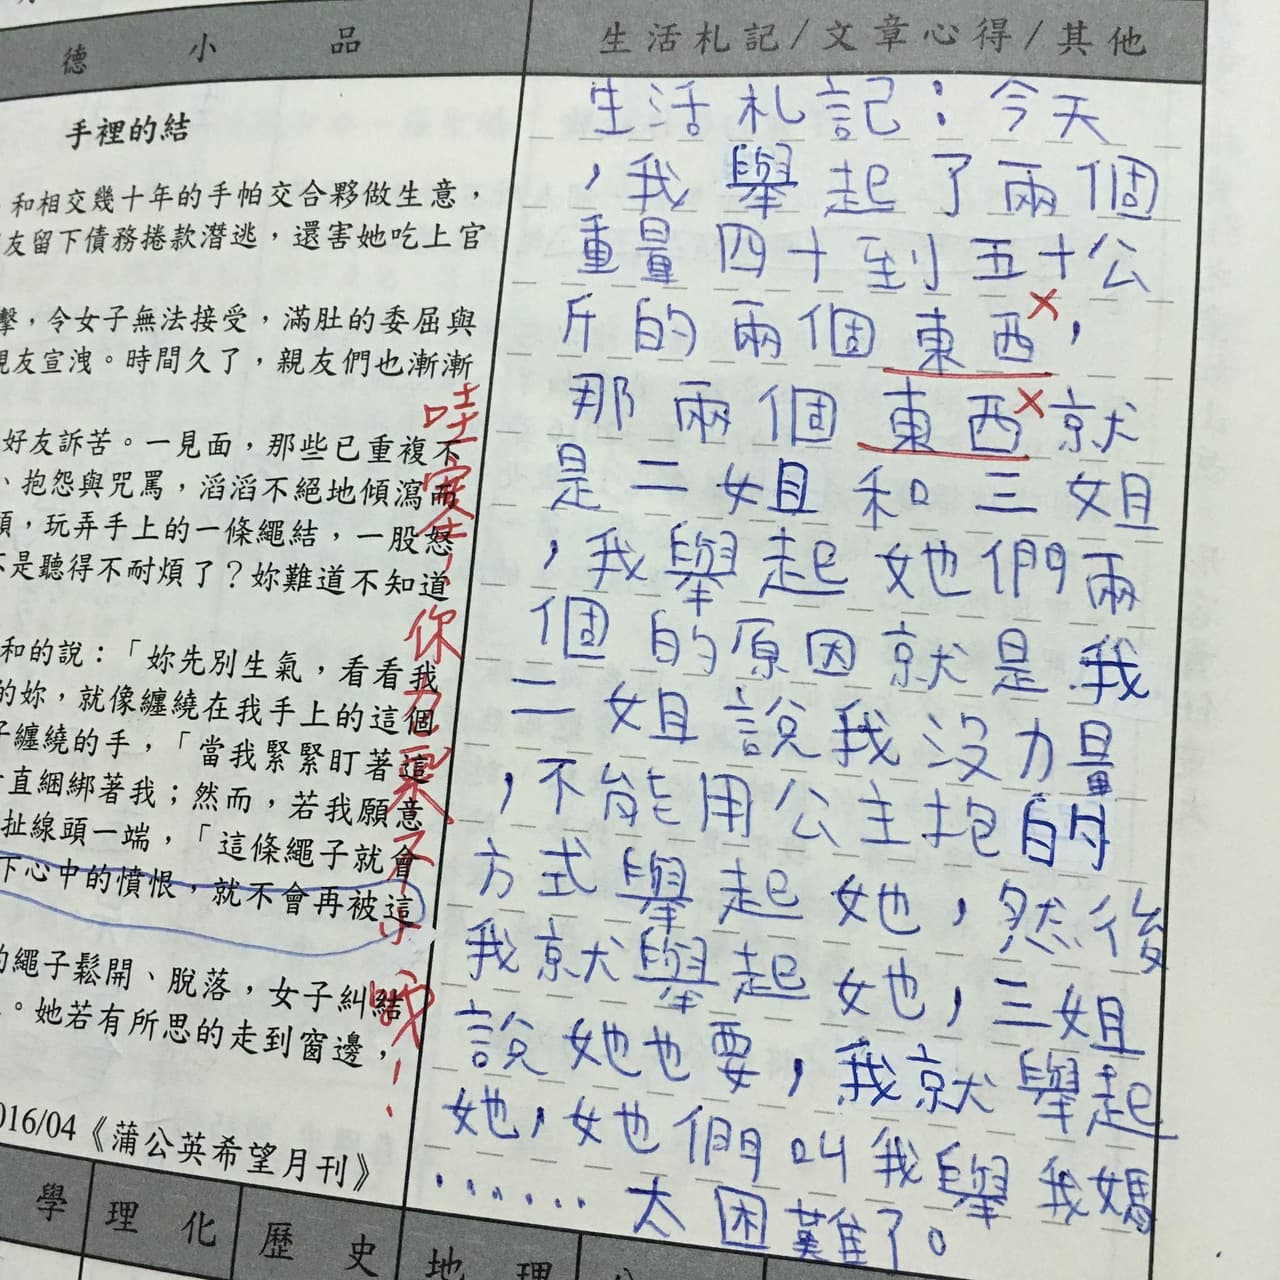 德小品
生活札記/文章心得/其他
手裡的結
和相交幾十年的手帕交合夥做生意，
友留下債務捲款潛逃，還害她吃上官
擊，令女子無法接受，滿肚的委屈與
親友宣洩。時間久了，親友們也漸漸
好友訴苦。一見面，那些已重複不
、抱怨與咒罵，滔滔不絕地傾瀉而
頭，玩弄手上的一條繩結，一股怒
不是聽得不耐煩了？妳難道不知道
和的說：「妳先別生氣，看看我
的妳，就像纏繞在我手上的這個
子纏繞的手，「當我緊緊盯著這
一直綑綁著我；然而，若我願意
扯線頭一端，「這條繩子就會
下心中的憤恨，就不會再被這
的繩子鬆開、脫落，女子糾結
。她若有所思的走到窗邊，
2016/04《蒲公英希望月刊》
哇塞！你力氣不小哦！
生活札記：今天
，我舉起了兩個
重量四十到五十公
斤的兩個東西，
那兩個東西就
是二姐和三姐
，我舉起她們兩
個的原因就是我
二姐說我沒力量
，不能用公主抱的
方式舉起她，然後
我就舉起她，三姐
說她也要，我就舉起
她，她們叫我舉我媽
⋯⋯太困難了。
學 理化 歷史 地理